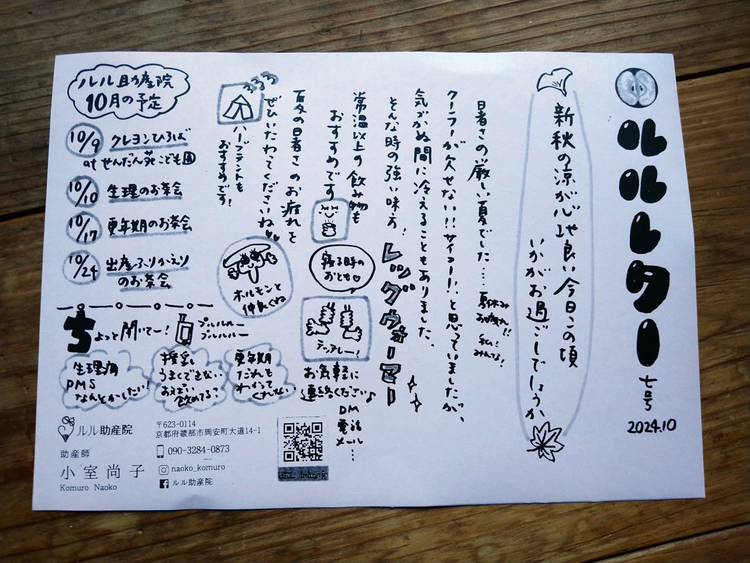 ルルレター
七号
2024.10
新秋の涼が心地良い今日この頃
いかがお過ごしでしょうか
暑さの厳しい夏でした…
夏休み
お疲れさま!!
みんな!
クーラーが欠せない!!サイコー!!と思っていましたが、
気がつかぬ間に冷えることもありました。
そんな時の強い味方!
レッグウォーマー
常温以上の飲み物も
おすすめです
寝る時の
おとも
テッテレー!
お気軽に
連絡ください♪
DM
電話
メール…
夏の暑さのお疲れを
ぜひいたわってくださいね
ハーブテントも
おすすめです!
ホルモンと
仲良くね
ルル助産院
10月の予定
10/9 クレヨンひろば
at せんだん苑こども園
10/10 生理のお茶会
10/17 更年期のお茶会
10/24 出産ふりかえり
のお茶会
ちょっと聞いてー!
プルルルー
プルルルー
生理痛
PMS
なんとかしたい!
授乳
うまくできない
おっぱい
飲めてる?
更年期
だれも
わかって
くれない
ルル助産院
助産師
小室尚子
Komuro Naoko
〒623-0114
京都府綾部市岡安町大道14-1
090-3284-0873
naoko_komuro
ルル助産院